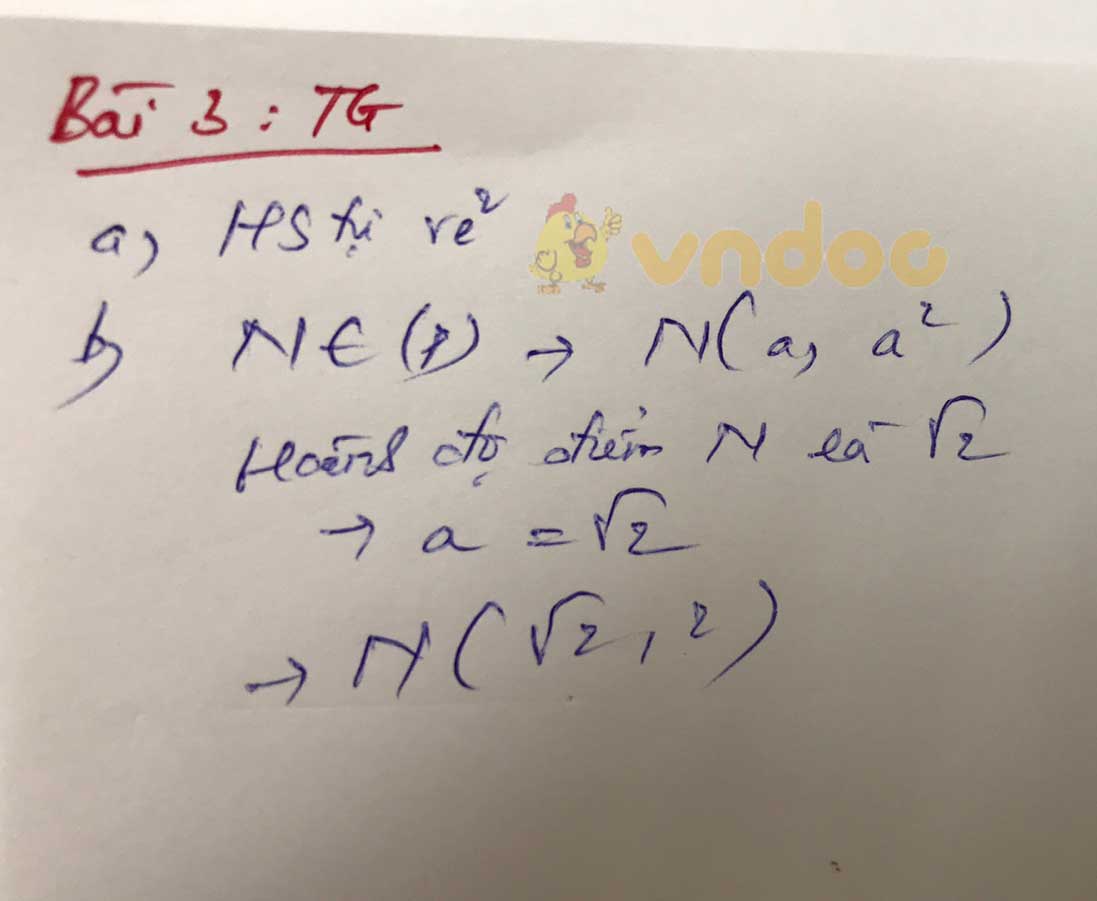 Bài 3 : TG
a, HS tự vẽ
vndoc
b, N ∈ (P) → N(a, a²)
Hoành độ điểm N là √2
→ a = √2
→ N(√2, 2)